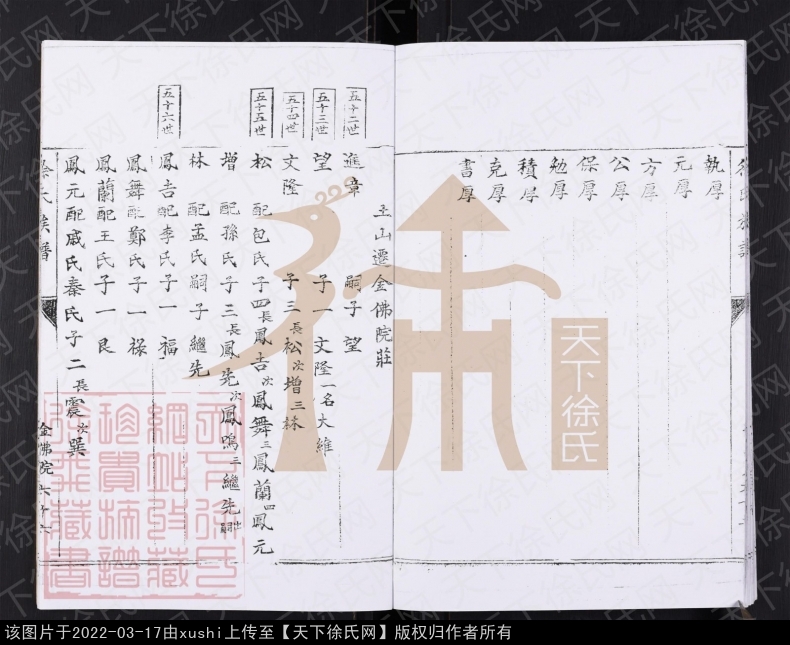 徐氏族譜
執厚
元厚
方厚
公厚
保厚
勉厚
積厚
克厚
書厚
玉山遷金佛院莊
五十二世
進章 嗣子望
五十三世
望 子一文隆一名大維
五十四世
文隆 子三長松次增三林
五十五世
松 配包氏子四長鳳吉次鳳舞三鳳蘭四鳳元
增 配孫氏子三長鳳先次鳳鳴三繼先出嗣
林 配孟氏嗣子繼先
五十六世
鳳吉配李氏子一福
鳳舞配鄭氏子一祿
鳳蘭配王氏子一艮
鳳元配戚氏秦氏子二長震次巽
徐氏族譜
金佛院六十六
天下徐氏
天下徐氏网
该图片于2022-03-17由xushi上传至【天下徐氏网】版权归作者所有